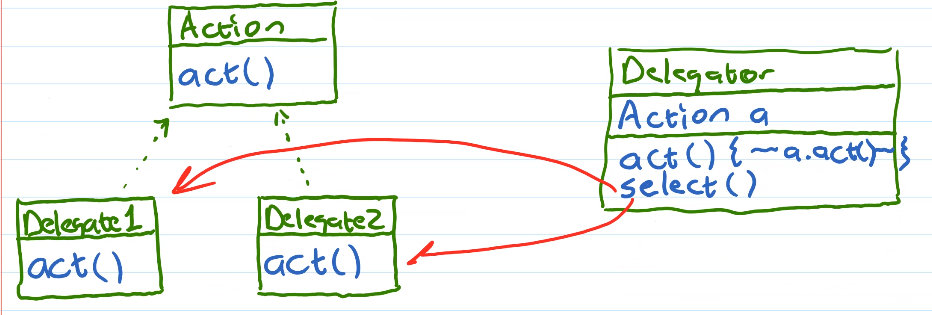 Action
act()
Delegator
Action a
act() { ~a.act()~ }
select()
Delegate1
act()
Delegate2
act()